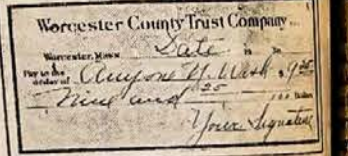 Worcester County Trust Company
Worcester, Mass. Date 19
Pay to the order of Anyone U. Wish $9 25
Nine and 25 100 Dollars
Your Signature